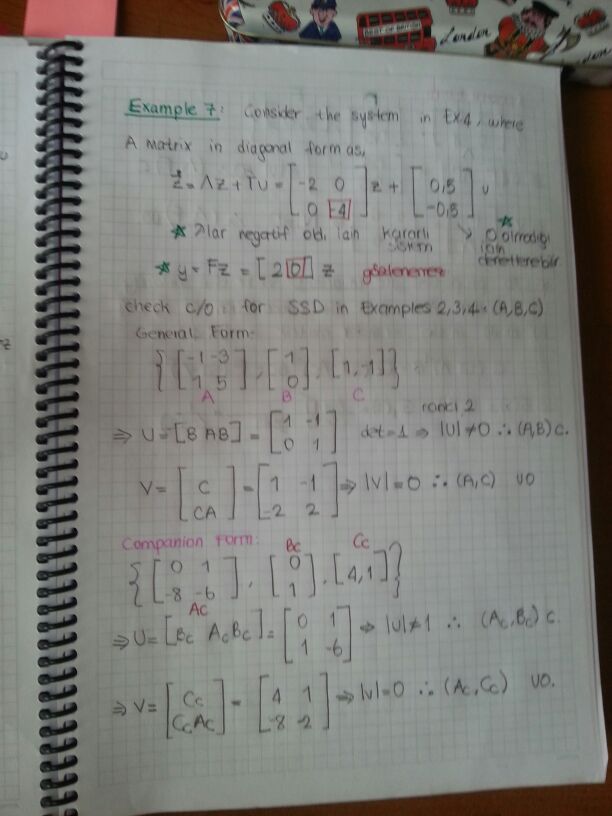 BEST OF BRITISH
London
Example 7: Consider the system in Ex4, where
A matrix in diagonal form as,
ż = Λz + Γu = [-2 0; 0 -4] z + [0,5; -0,5] u
* λlar negatif old. için kararlı sistem
* 0 olmadığı için
* y = Fz = [2 0] z
check c/o for SSD in Examples 2,3,4. (A,B,C)
General Form:
{[-1 -3; 1 5], [1; 0], [1, -1]}
A B C
⇒ U = [B AB] = [1 -1; 0 1] det = 1 ⇒ |U| ≠ 0 ∴ (A,B) c.
rank 2
V = [C; CA] = [1 -1; -2 2] ⇒ |V| = 0 ∴ (A,C) UO
Companion Form:
{[0 1; -8 -6], [0; 1], [4,1]}
Ac Bc Cc
⇒ U = [Bc AcBc] = [0 1; 1 -6] ⇒ |U| ≠ 1 ∴ (Ac,Bc) c.
⇒ V = [Cc; CcAc] = [4 1; -8 -2] ⇒ |V| = 0 ∴ (Ac,Cc) UO.